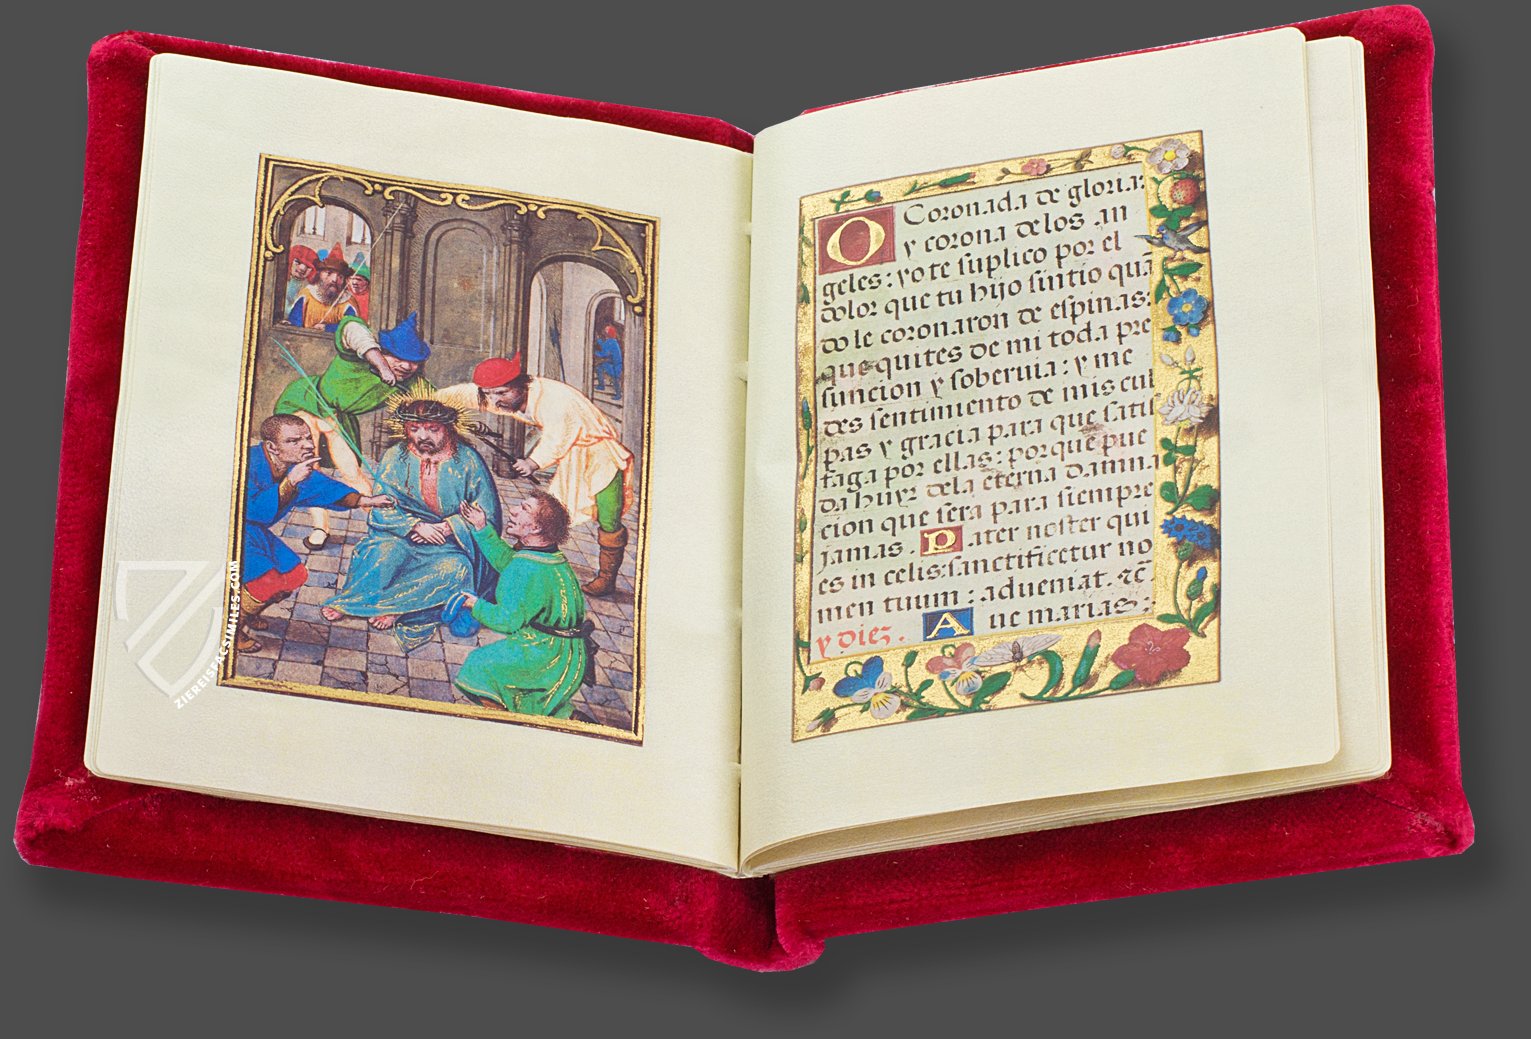 O Coronada de gloria:
y corona delos an
geles: yo te suplico por el
dolor que tu hijo sintio quã
do le coronaron de espinas:
que quites de mi toda pre
suncion y soberuia: y me
des sentimiento de mis cul
pas y gracia para que satis
faga por ellas: porque pue
da huyr dela eterna damna
cion que sera para siempre
jamas. Pater noster qui
es in celis: sanctificetur no
men tuum: adueniat. ⁊c̃.
y diez. Aue marias:
ZIEREISFACSIMILES.COM